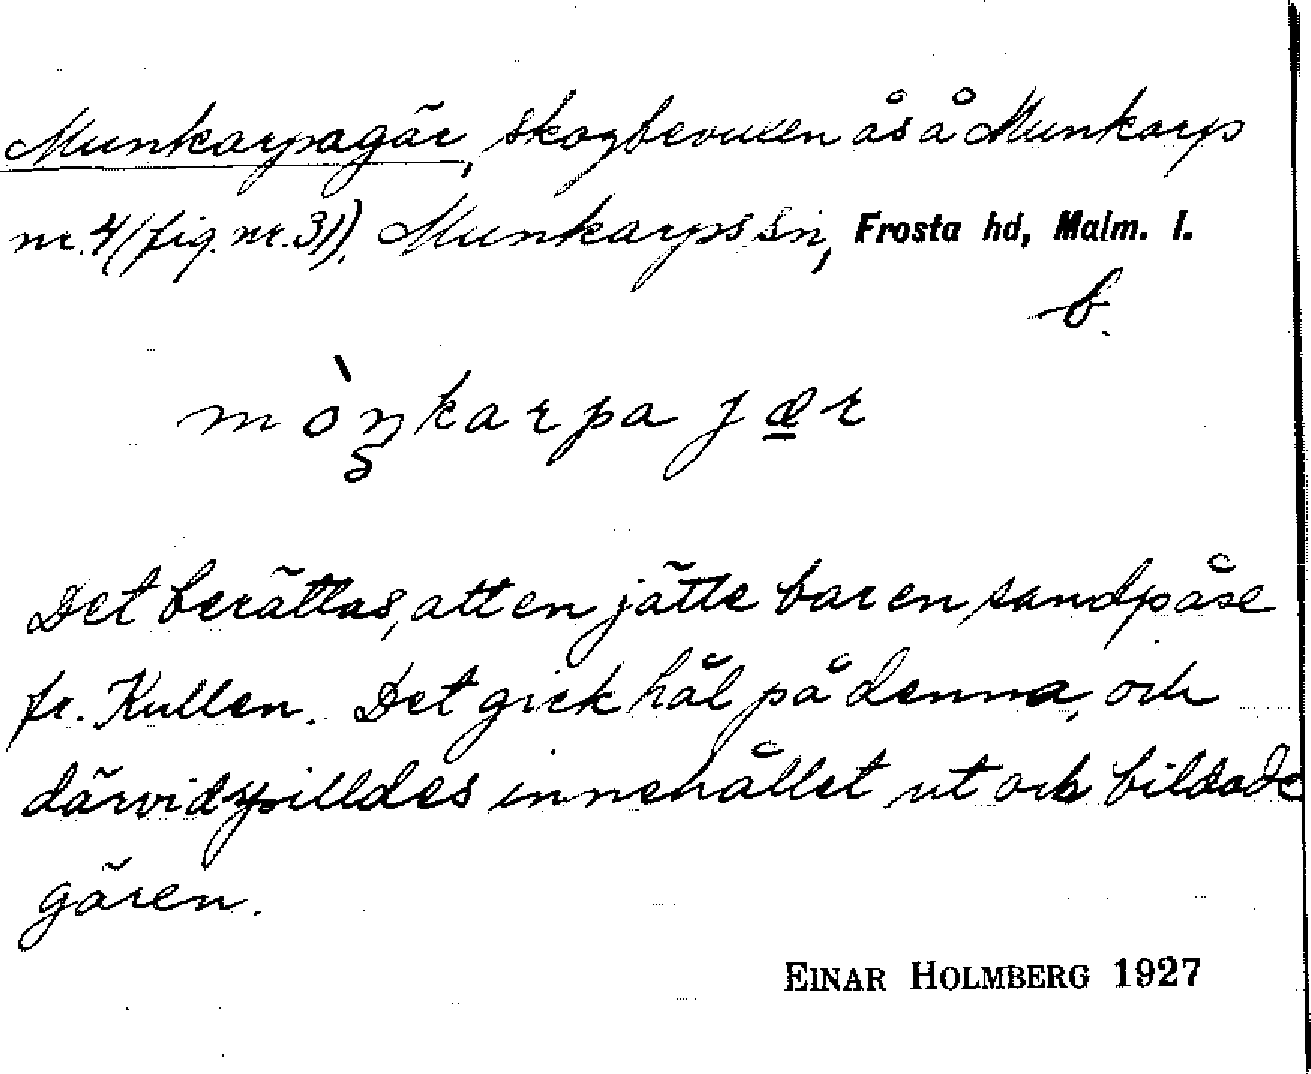 Munkarpagär, skogbevuxen ås å Munkarp
nr. 4 (fig. nr. 31), Munkarps sn, Frosta hd, Malm. l.
b.
mòŋkarpa jær
Det berättas, att en jätte bar en sandpåse
fr. Kullen. Det gick hål på denna, och
därvid spilldes innehållet ut och bildade
gären.
EINAR HOLMBERG 1927